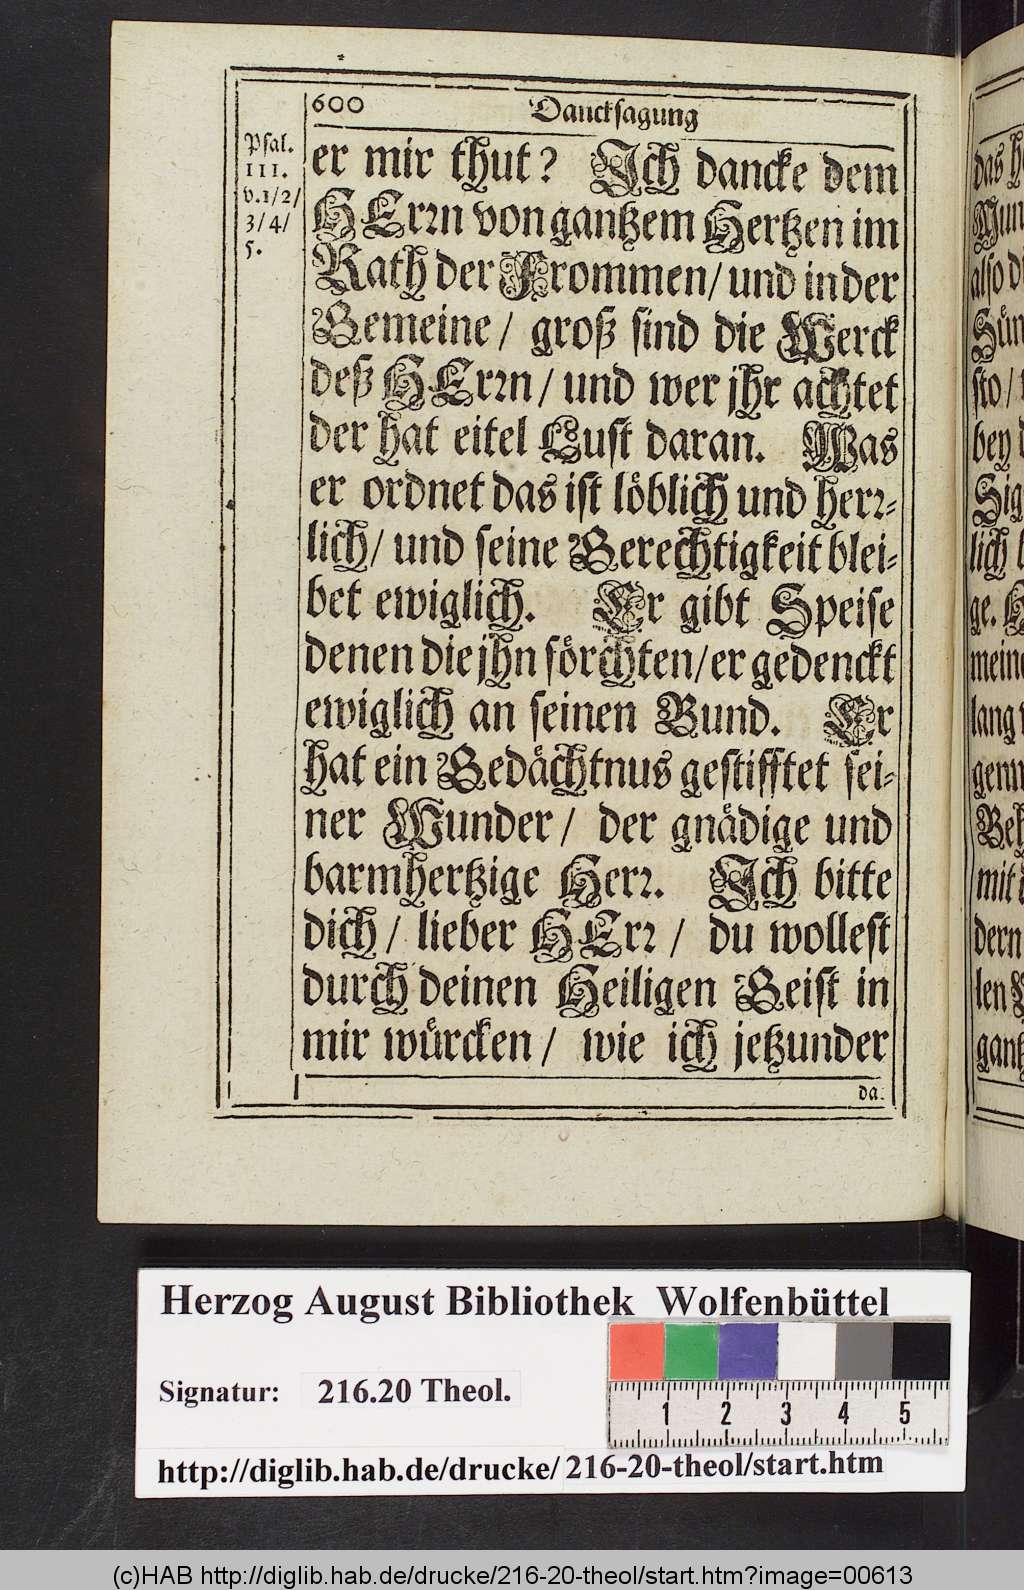 600 Dancksagung
Psal.
111.
v.1/2/
3/4/
5.
er mir thut? Ich dancke dem
HErrn von gantzem Hertzen im
Rath der Frommen/ und in der
Gemeine/ groß sind die Werck
deß HErrn/ und wer jhr achtet
der hat eitel Lust daran. Was
er ordnet das ist löblich und herr-
lich/ und seine Gerechtigkeit blei-
bet ewiglich. Er gibt Speise
denen die jhn förchten/ er gedenckt
ewiglich an seinen Bund. Er
hat ein Gedächtnus gestifftet sei-
ner Wunder/ der gnädige und
barmhertzige Herr. Ich bitte
dich/ lieber HErr/ du wollest
durch deinen Heiligen Geist in
mir würcken/ wie ich jetzunder
da.
also
Sün
sto/
bey
Sig
lich
ge.
meine
lang
mit
dern
len
gantz
Herzog August Bibliothek Wolfenbüttel
Signatur: 216.20 Theol.
1 2 3 4 5
http://diglib.hab.de/drucke/216-20-theol/start.htm
(c)HAB http://diglib.hab.de/drucke/216-20-theol/start.htm?image=00613